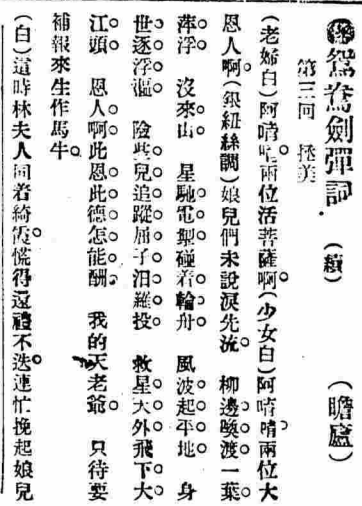 鴛鴦劍彈詞 (續) (瞻廬)
第三回 拯美
(老婦白)阿唷唷兩位活菩薩啊(少女白)阿唷唷兩位大
恩人啊。(銀紐絲調)娘兒們未說淚先流。 柳邊喚渡一葉。
萍浮 沒來山 星馳電掣碰着輪舟 風波起平地 身
世逐浮漚 險些兒追蹤屈子汨羅投 救星天外飛下大
江頭 恩人啊此恩此德怎能酬。 我的天老爺 只待要
補報來生作馬牛。
(白)這時林夫人同着綺霞。慌得還禮不迭。連忙挽起娘兒